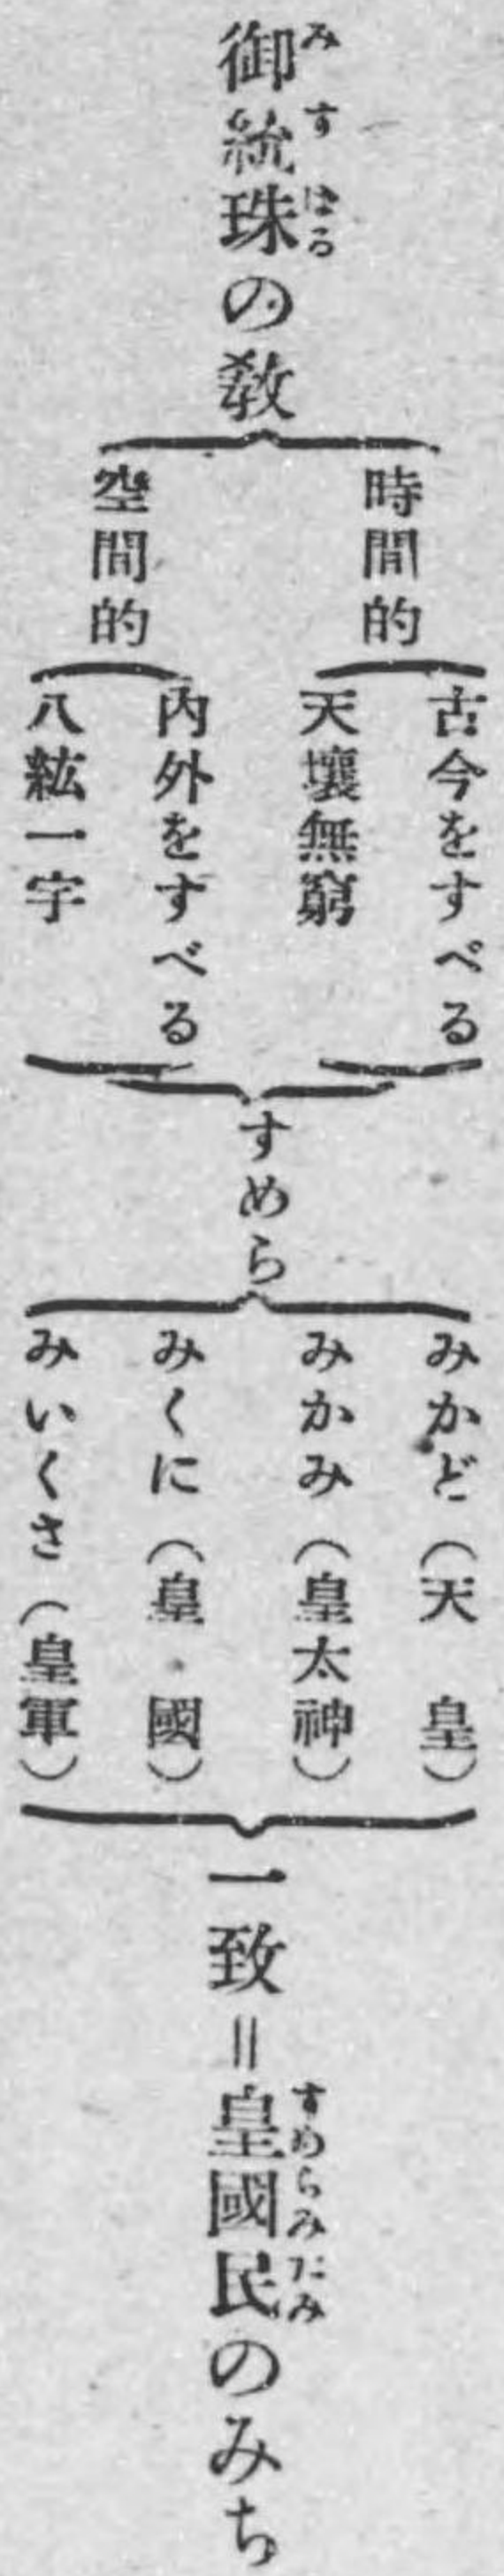 御統珠の教
みすはる
時間的
古今をすべる
天壤無窮
空間的
内外をすべる
八紘一宇
すめら
みかど(天 皇)
みかみ(皇太神)
みくに(皇 國)
みいくさ(皇軍)
一致=皇國民のみち
すめらみたみ